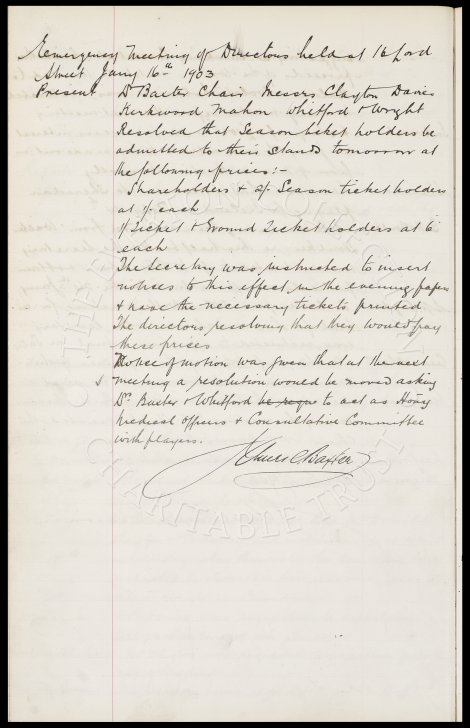 Emergency Meeting of Directors held at 16 Cord
Street Jany 16th 1903
Present Dr Baxter Chair Messrs Clayton Davies
Kirkwood Mahon Whitford & Wright
Resolved that Season ticket holders be
admitted to their stands tomorrow at
the following prices:-
Shareholders & Season ticket holders
at 1/- each
Ticket & Ground Ticket holders at 6
each
The Secretary was instructed to insert
notices to this effect in the evening papers
& have the necessary tickets printed
The directors resolving that they would pay
these prices
Notice of motion was given that at the next
meeting a resolution would be moved asking
Dr. Baxter & Whitford to act as Hony
Medical Officers & Consultative Committee
with players.
James C Baxter
THE EVERTON COLLECTION
CHARITABLE TRUST